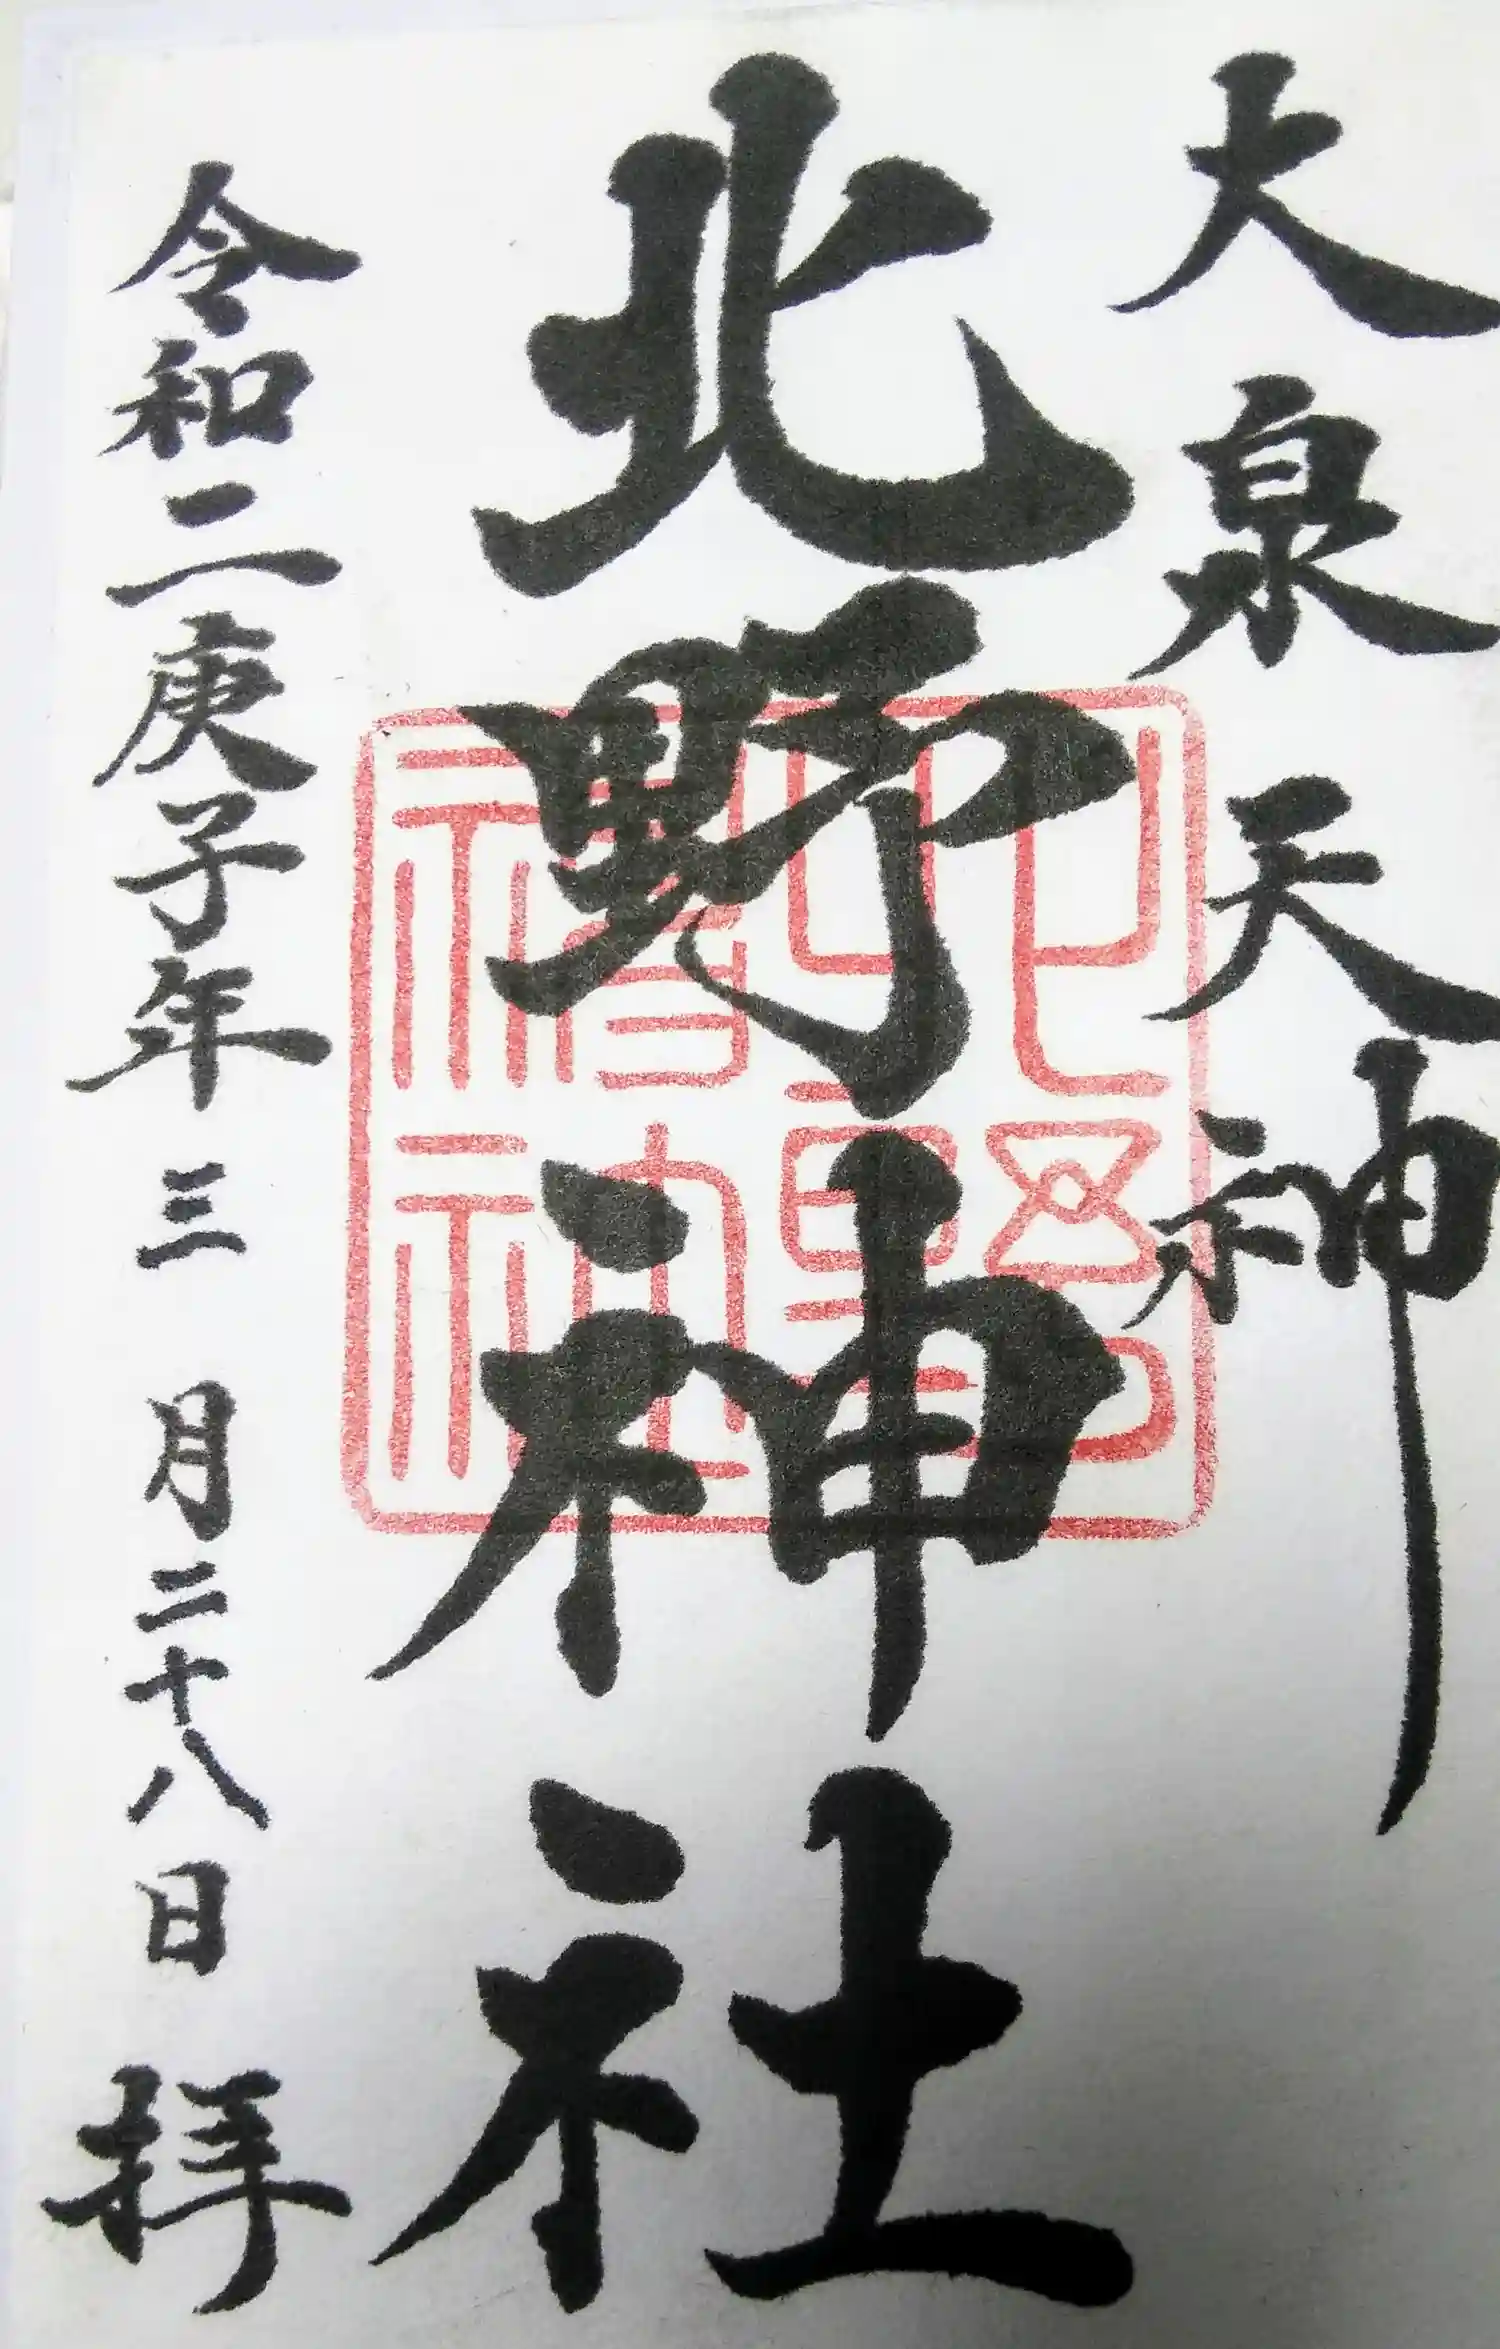 大泉天神
北野神社
令和二庚子年三月二十八日拝